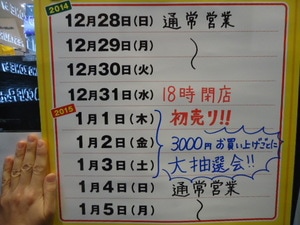 2014
12月28日(日) 通常営業
12月29日(月)
12月30日(火)
12月31日(水) 18時閉店
2015
1月1日(木) 初売り!!
1月2日(金) 3000円お買い上げごとに
1月3日(土) 大抽選会!!
1月4日(日) 通常営業
1月5日(月)